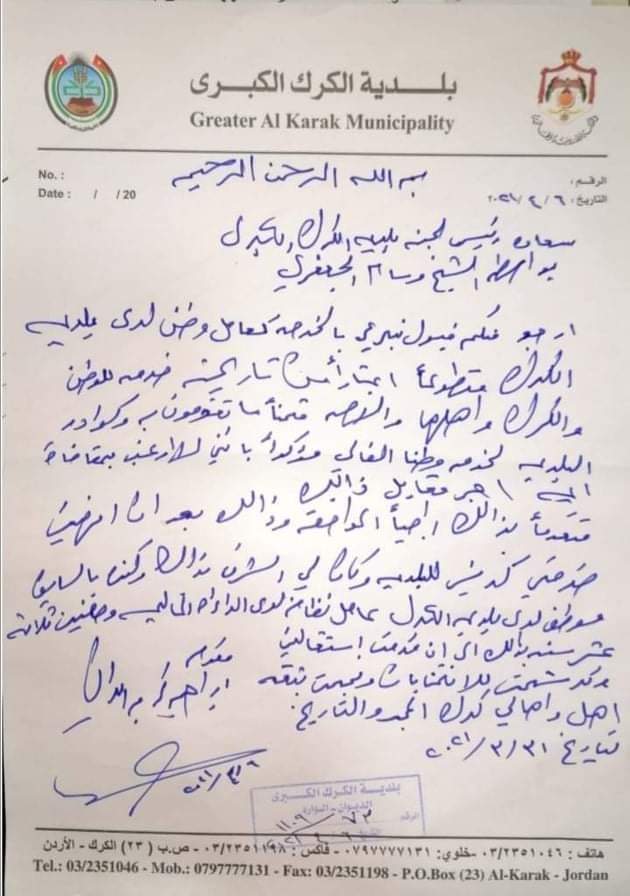 بلدية الكرك الكبرى
Greater Al Karak Municipality
No. :
Date : / / 20
الرقم :
التاريخ : ٢٠٢١/٤/٦
بسم الله الرحمن الرحيم
سعادة رئيس لجنة بلدية الكرك الكبرى
بواسطة الشيخ وسام الجعفري
ارجو منكم قبول تبرعي بالخدمة كعامل وطن لدى بلدية
الكرك متطوعاً اعتباراً من تاريخه خدمه للوطن
والكرك واهلها مثمناً ما تقومون به وكوادر
البلديه لخدمة وطننا الغالي مؤكداً بانني لا ارغب بتقاضي
اجر مقابل ذالك
متقدماً بذالك راجياً الموافقه وذالك بعد ان انهيت
خدمتي كرئيس للبلديه وكان لي الشرف بذالك وكنت بالسابق
موظف لدى بلدية الكرك عامل نظافة لدى الدائرة وامضيت ثلاثة
عشر سنه بذالك الى ان قدمت إستقالتي
وترشحت للانتخابات ونجحت بثقه
اهل واهالي كرك المجد والتاريخ
بتاريخ ٢٠٢١/٣/٣١
مقدمه
ابراهيم الكركي
بلدية الكرك الكبرى
الديوان - الوارد
الرقم
هاتف : ٠٣/٢٣٥١٠٤٦ -خلوي: ٠٧٩٧٧٧٧١٣١ - فاكس : ٠٣/٢٣٥١١٩٨ - ص.ب ( ٢٣ ) الكرك - الأردن
Tel.: 03/2351046 - Mob.: 0797777131 - Fax: 03/2351198 - P.O.Box (23) Al-Karak - Jordan